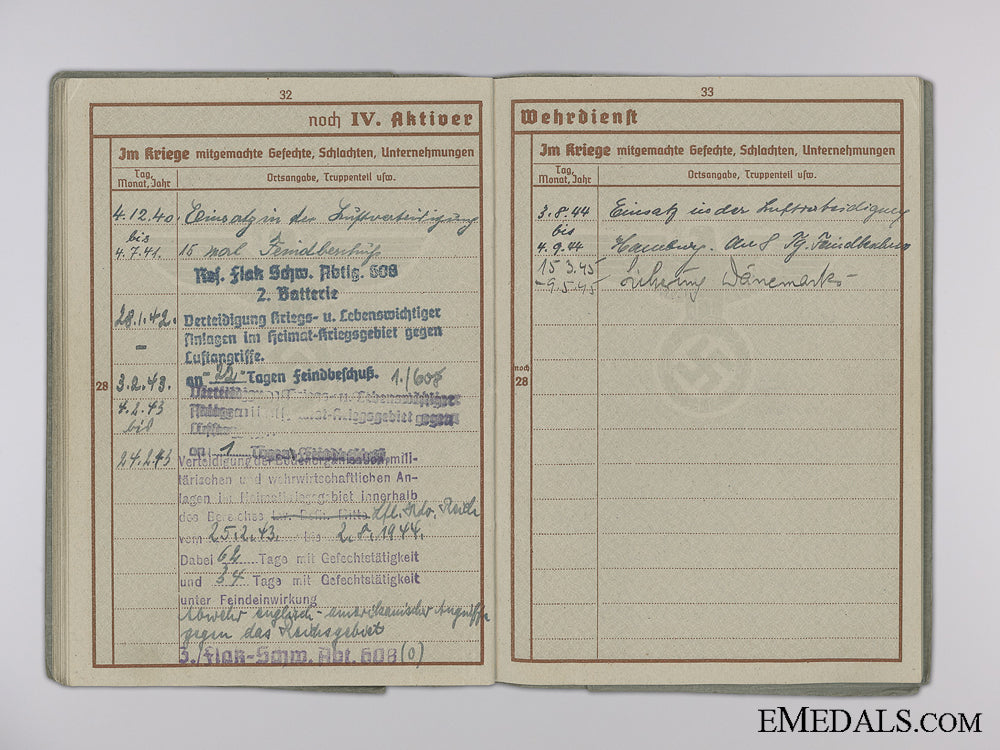 32
noch IV. Aktiver
Im Kriege mitgemachte Gefechte, Schlachten, Unternehmungen
Tag, Monat, Jahr
Ortsangabe, Truppenteil usw.
4.12.40. Einsatz in der Luftverteidigung
bis
4.7.41. 15 mal Feindbeschuß
Res. Flak Schw. Abtlg. 608
2. Batterie
28.1.42. Verteidigung Kriegs- u. Lebenswichtiger
Anlagen im Heimat-Kriegsgebiet gegen
Luftangriffe.
28
3.2.43. an "22" Tagen Feindbeschuß. 1./608
Verteidigung Kriegs- u. Lebenswichtiger
4.2.43 Anlagen im Heimat-Kriegsgebiet gegen
bis
an 1 Tagen
24.2.43 Verteidigung der Bodenorganisation, mili-
tärischen und wehrwirtschaftlichen An-
lagen im Heimatkriegsgebiet innerhalb
des Bereiches Lw. Befh. Mitte Lfl. Kdo. Reich
vom 25.2.43. bis 2.8.1944.
Dabei 62 Tage mit Gefechtstätigkeit
und 34 Tage mit Gefechtstätigkeit
unter Feindeinwirkung
Abwehr englisch-amerikanischer Angriffe
gegen das Reichsgebiet
3. Flak-Schw. Abt. 608 (o)
33
Wehrdienst
Im Kriege mitgemachte Gefechte, Schlachten, Unternehmungen
Tag, Monat, Jahr
Ortsangabe, Truppenteil usw.
3.8.44 Einsatz in der Luftverteidigung
bis
4.9.44 Hamburg. An 8 Tg.
15.3.45
-9.5.45 Sicherung Dänemarks
noch
28
EMEDALS.COM